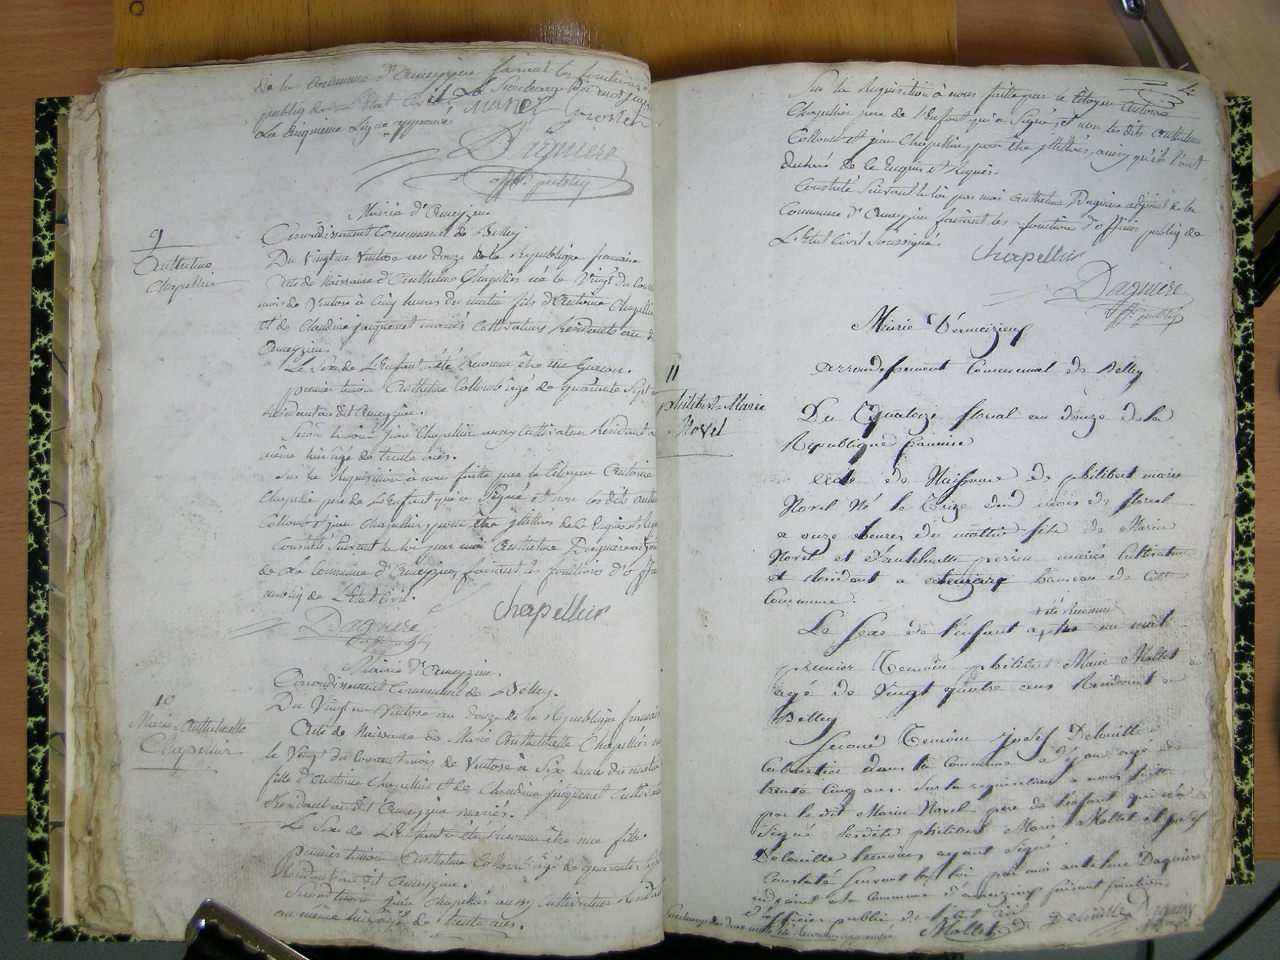 de la Commune d'Ameyzieu faisant les fonctions
public de l'Etat Civil
La cinquieme ligne approuvée
Morel
Daguiere
off. public
Mairie d'Ameyzieu
9
Anthelme
Chapellier
Arrondissement Communal de Belley
Du Vingt un Ventose an douze de la Republique francaise
Acte de Naissance d'Anthelme Chapellier né le Vingt du Courant
mois de Ventose à Cinq heures du matin fils d'Antoine Chapellier
et de Claudine jacquemet mariés Cultivateurs Residents au dit
Ameyzieu.
Le Sexe de L'Enfant à été Reconnu être un Garcon.
premier temoin Anthelme Colloud âgé de quarante Sept
Résident au dit Ameyzieu.
Second temoin jean Chapellier aussy Cultivateur Résident
meme lieu âgé de trente ans.
Sur la Requisition à nous faite par le Citoyen Antoine
Chapellier pere de L'Enfant qui a Signé et non les dits
Colloud et jean Chapellier, pour être illettres de ce Enquis
Constaté Suivant la loi par moi Anthelme Daguiere
de la Commune d'Ameyzieu, faisant les fonctions d'off
public de L'Etat Civil.
Daguiere
off. public
Chapellier
Mairie d'Ameyzieu.
10
Marie Anthelmette
Chapellier
Arrondissement Communal de Belley.
Du Vingt un Ventose an douze de la Republique francaise
Acte de Naissance de Marie Anthelmette Chapellier
le Vingt du Courant mois de Ventose à Six heures du matin
fille d'Antoine Chapellier et de Claudine jacquemet
Residant au dit Ameyzieu mariés.
Le Sexe de L'Enfant à été Reconnu être une fille.
Premier temoin Anthelme Colloud âgé de quarante Sept
Résident au dit Ameyzieu.
Second temoin jean Chapellier aussy Cultivateur Résident
au meme lieu âgé de trente ans.
Sur la Requisition à nous faite par le Citoyen Antoine
Chapellier pere de l'Enfant qui a Signé, et non les dits Anthelme
Colloud et jean Chapellier, pour être illettres, ainsy qu'ils l'ont
declaré de ce Enquis et Requis.
Constaté Suivant la loi par moi Anthelme Daguiere adjoint de la
Commune d'Ameyzieu faisant les fonctions d'officier public de
L'Etat Civil Soussigné.
Chapellier
Daguiere
off. public
Mairie d'Ameizieu
11
philibert Marie
Morel
arrondissement Communal de Belley
Du Quatorze floreal an douze de la
Republique francaise
acte de Naissance de philibert marie
Morel Né le Treize du mois de floreal
a onze heures du matin fils de Marin
Morel et d'anthelmette mariés Cultivateurs
et Residant a hameau de cette
Commune.
Le sexe de l'enfant a été reconnu être un mâle
premier Temoin philibert Marie Mollet
agé de Vingt quatre ans Residant a
Belley
Second Temoin joseph Delaville
dans la Commune agé de
trente Cinq ans. Sur la requisition a nous faite
par le dit Marin Morel pere de l'enfant qui n'a
Signé les dits philibert Marie Mollet et joseph
Delaville temoins ayant Signé
Constaté Suivant la loi par moi anthelme Daguiere
adjoint de la Commune d'ameyzieu faisant fonctions
d'officier public de l'état civil
Mollet Delaville Daguiere